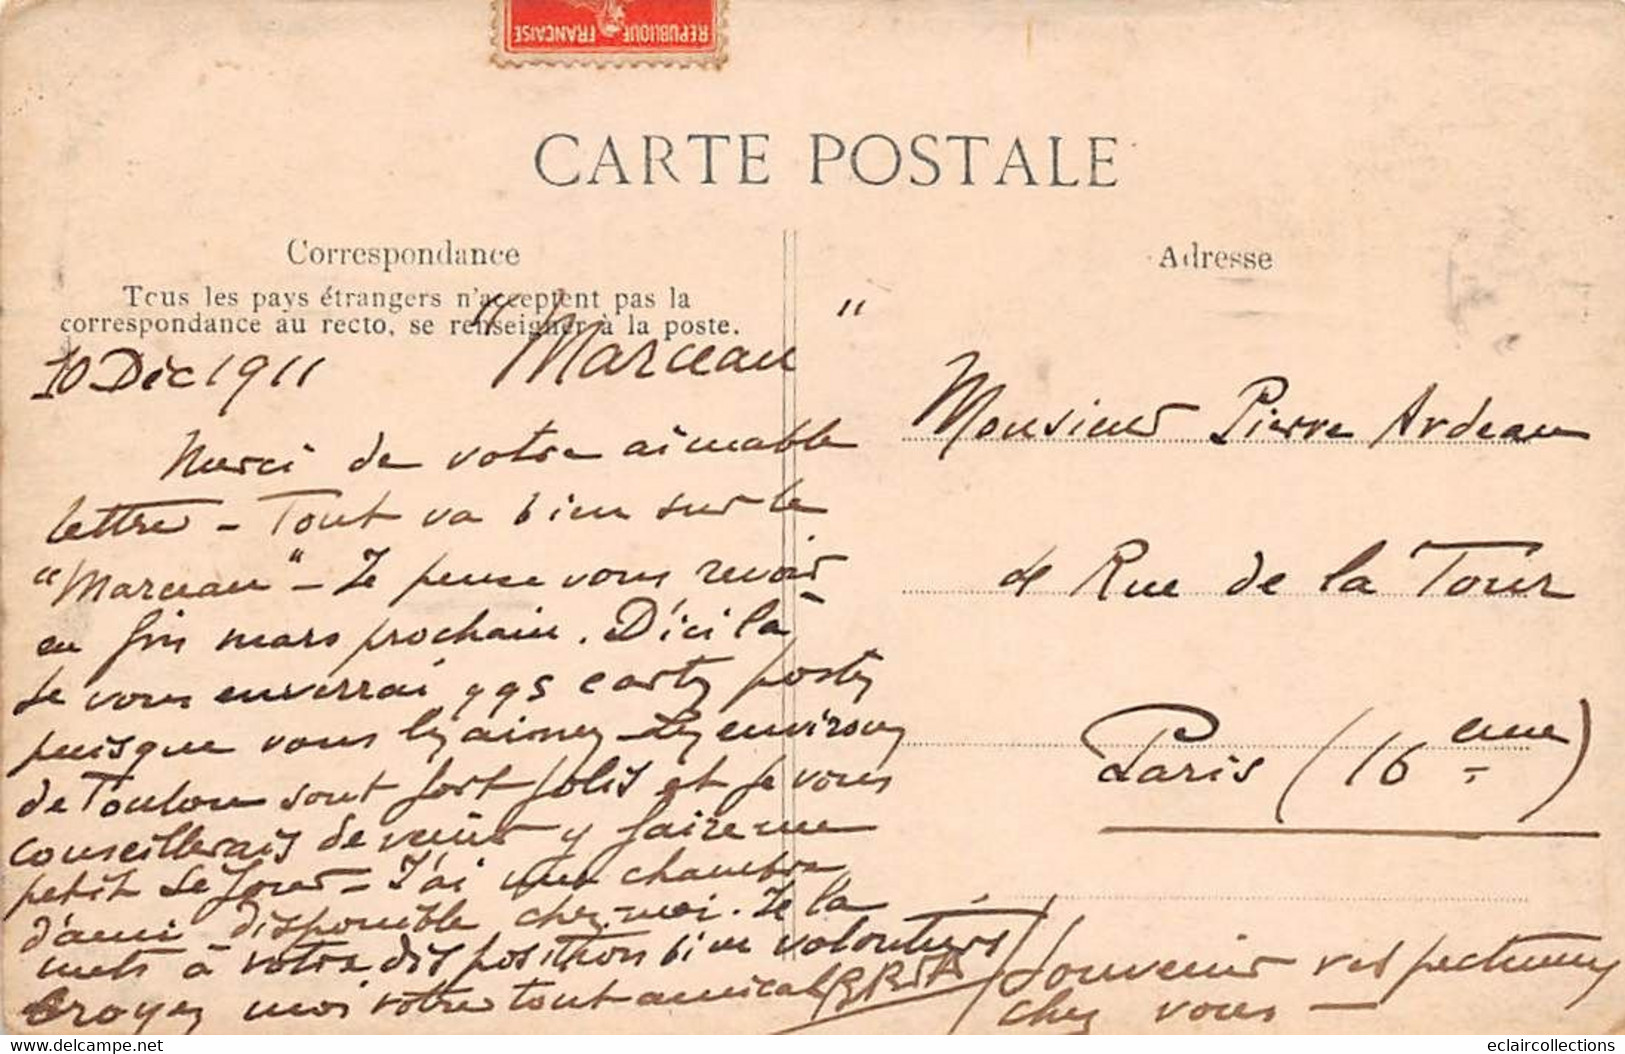 REPUBLIQUE FRANÇAISE
CARTE POSTALE
Correspondance
Tous les pays étrangers n'acceptent pas la
correspondance au recto, se renseigner à la poste.
10 Déc 1911 "Marceau"
Merci de votre aimable
lettre - Tout va bien sur le
"Marceau" - Je pense vous revoir
en fin mars prochain. D'ici là
Je vous enverrai qqs cartes postes
puisque vous les aimez - Les environs
de Toulon sont fort jolis et je vous
conseillerais de venir y faire un
petit séjour - J'ai une chambre
d'ami disponible chez moi. Je la
mets à votre disposition bien volontiers
Croyez moi votre tout amical
Souvenir respectueux
chez vous -
Adresse
Monsieur Pierre Ardeau
Rue de la Tour
Paris (16 eme)
eclaircollections